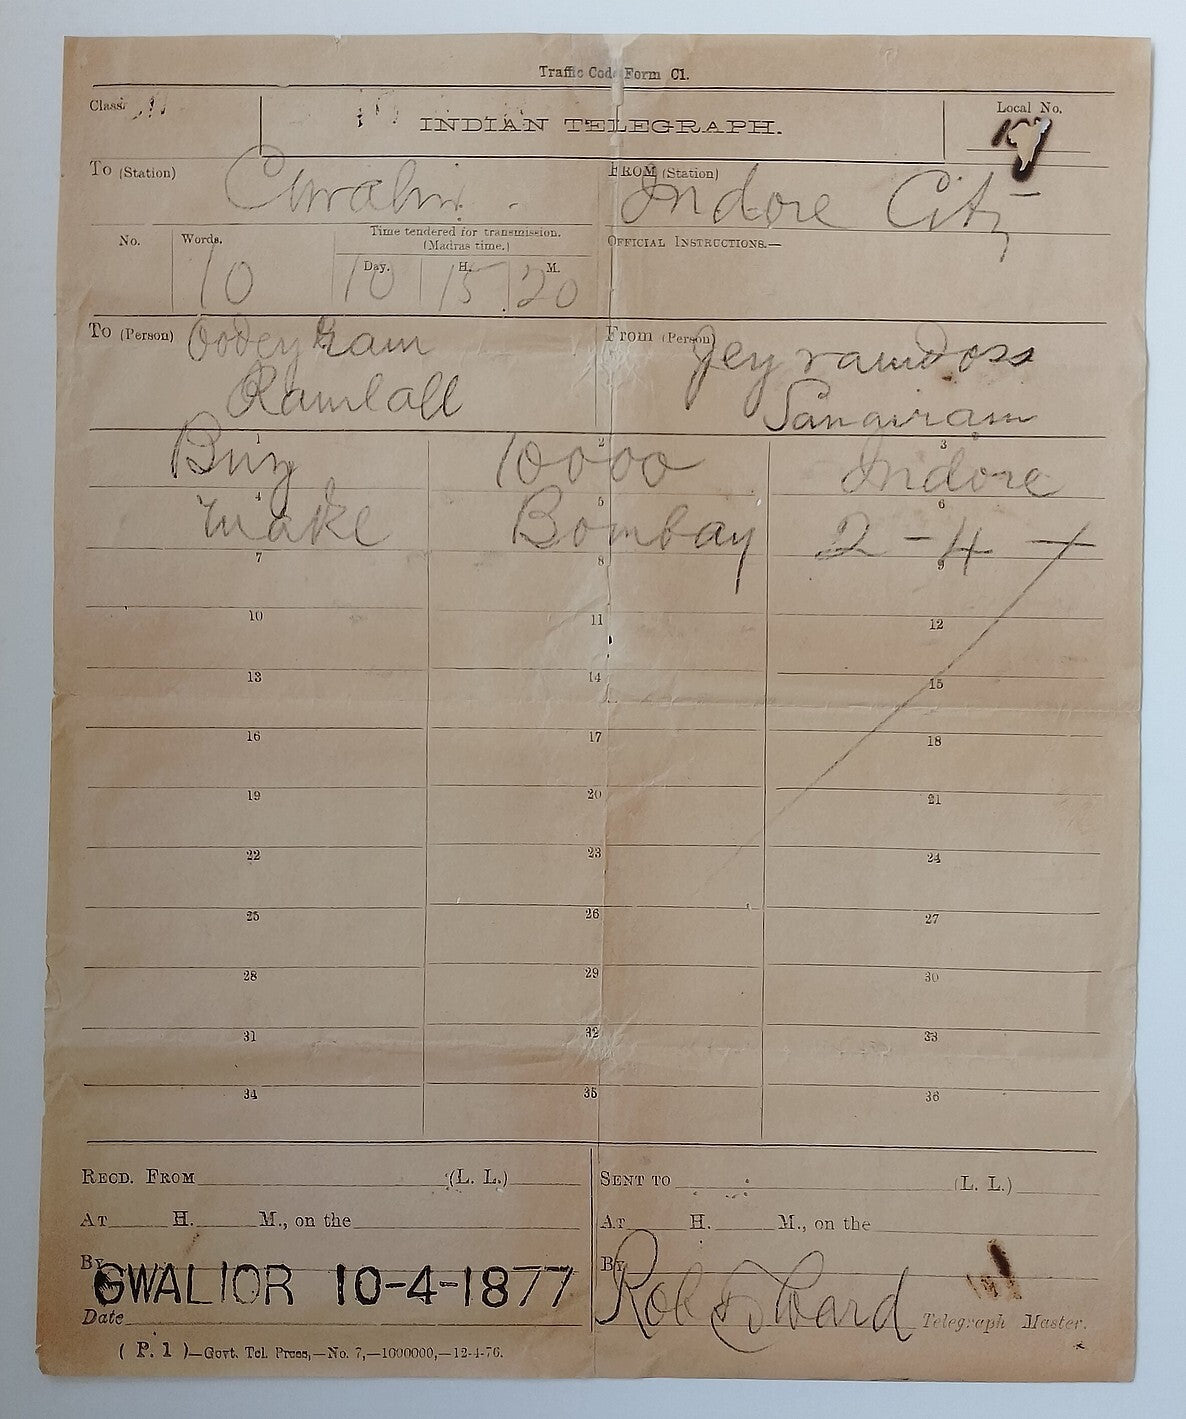 Traffic Code Form C1.
Class
INDIAN TELEGRAPH.
Local No.
To (Station)
FROM (Station) Indore City
No. Words. 10
Time tendered for transmission.
(Madras time.)
Day. 10 H. 15 M. 20
OFFICIAL INSTRUCTIONS.—
To (Person) Oodey Ram
Ramlall
From (Person) Jey ramdoss
1 Buy 2 10000 3 Indore
4 make 5 Bombay 6 2-4
7 8 9
10 11 12
13 14 15
16 17 18
19 20 21
22 23 24
25 26 27
28 29 30
31 32 33
34 35 36
RECD. FROM (L. L.)
AT H. M., on the
By
GWALIOR 10-4-1877
Date
SENT TO (L. L.)
AT H. M., on the
By
Telegraph Master.
( P. 1 )—Govt. Tel. Press,—No. 7,—1000000,—12-4-76.